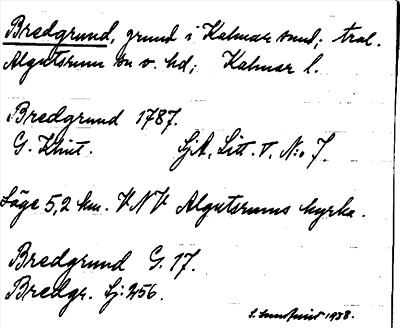 Bredgrund, grund i Kalmar sund; tral.
Algutsrum sn o. hd; Kalmar l.
Bredgrund 1787.
G. Klint. SjA, Litt. V, N:o 7.
Läge 5,2 km. VNV Algutsrums kyrka.
Bredgrund G. 17.
Bredgr. Sj: 256.
1938.